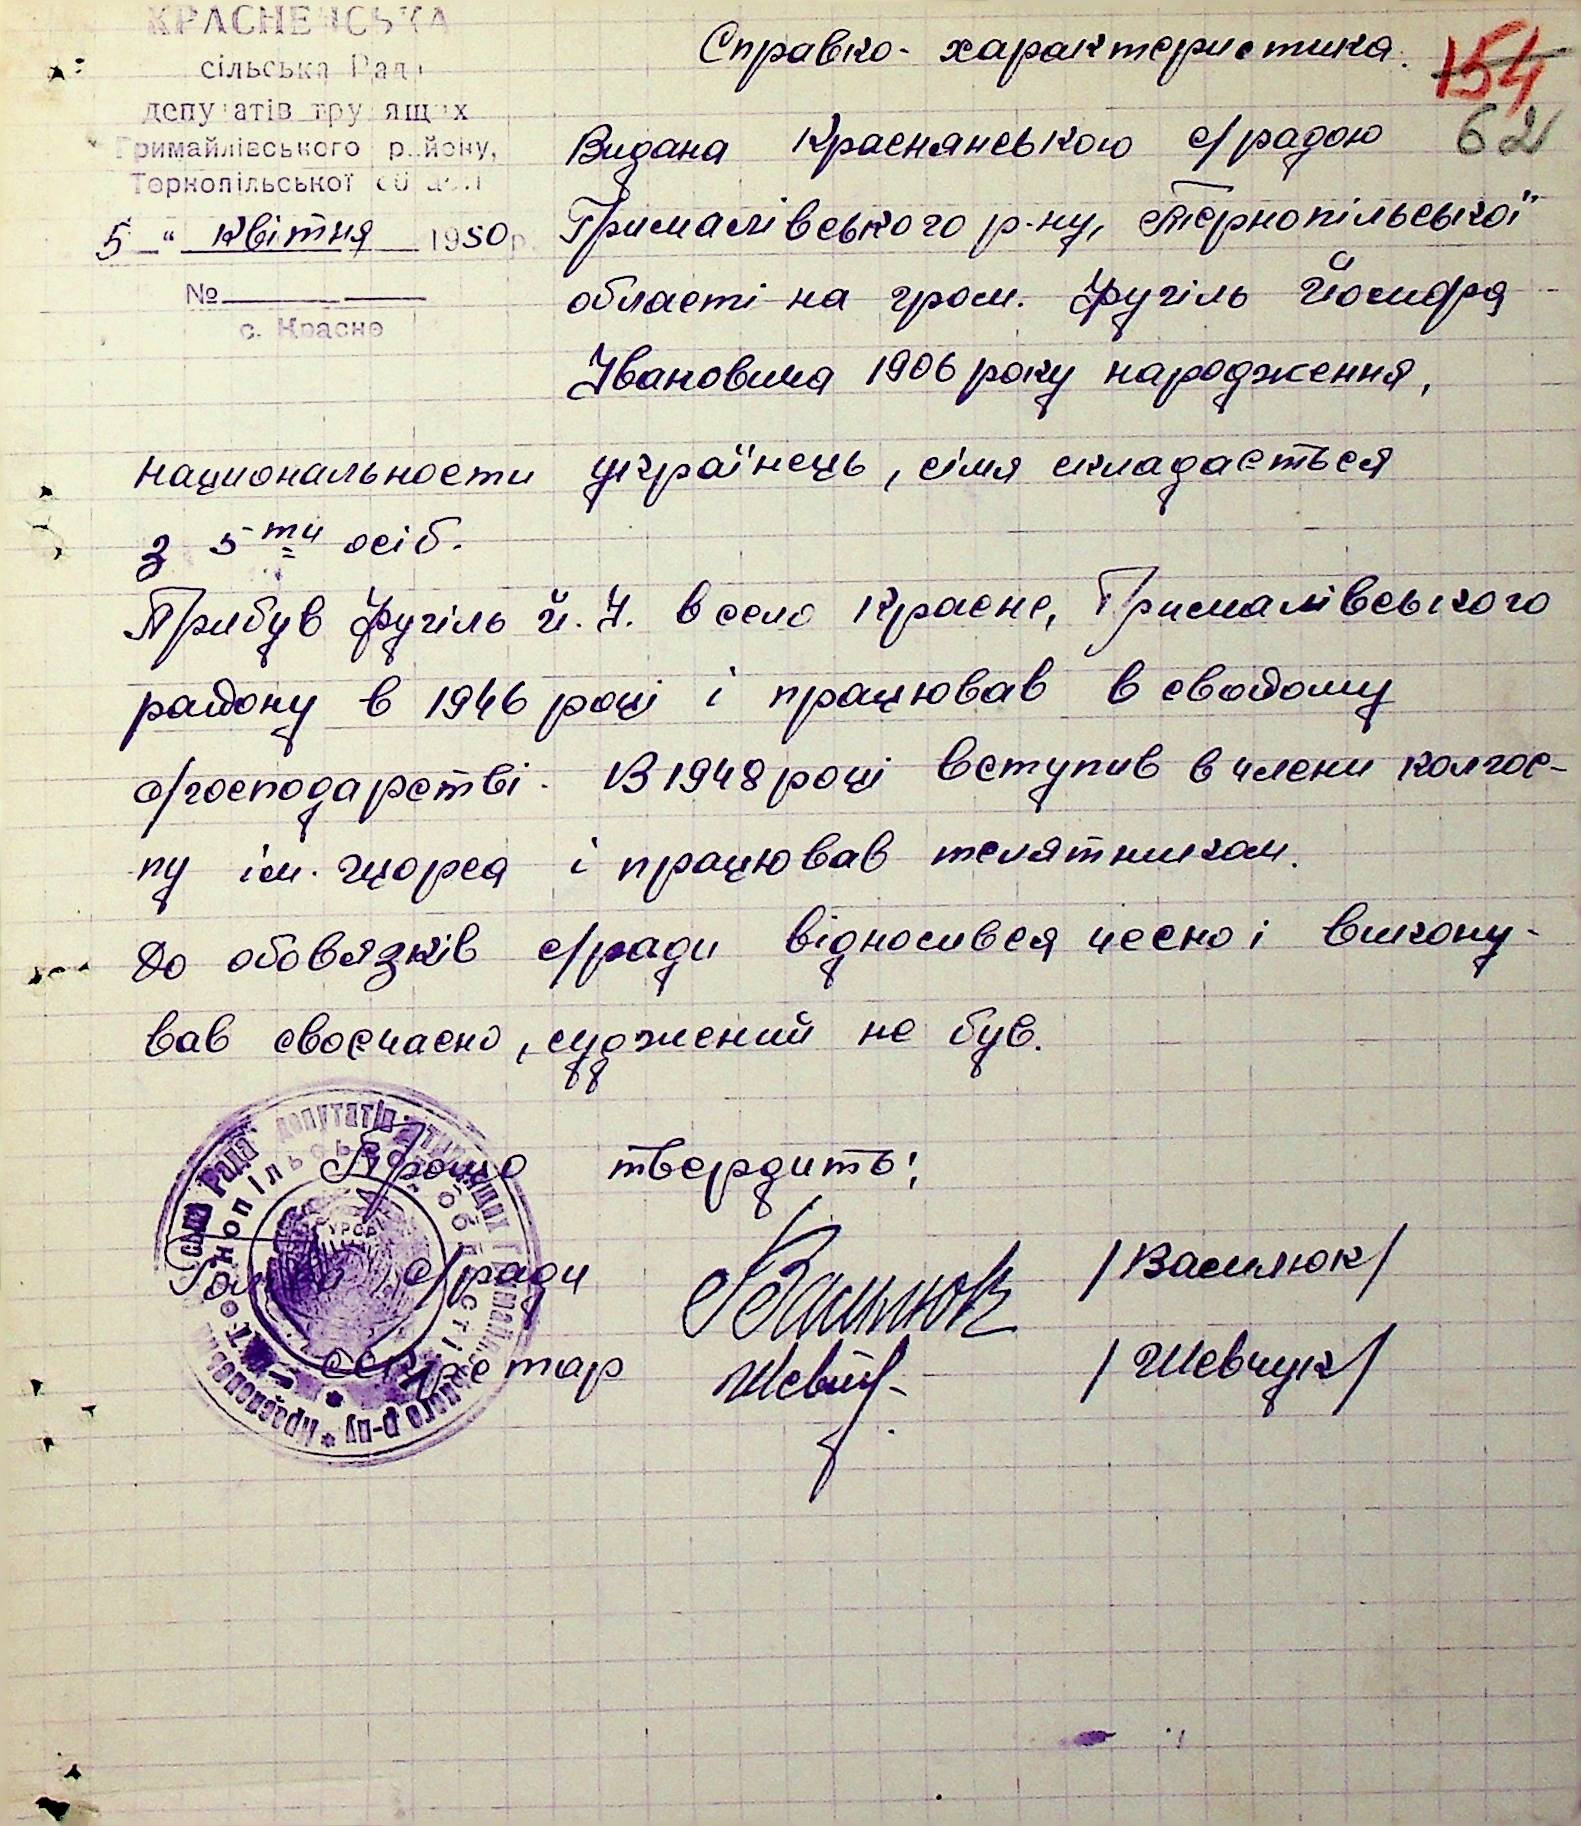 КРАСНЕНСЬКА
сільська Рада
депутатів трудящих
Гримайлівського району,
Тернопільської області
5 " квітня 1950 р.
№
с. Красне
154
62
Справко-характеристика.
Видана Краснянською с/радою
Грималівського р-ну, Тернопільської
області на гром. Фугіль Йосифа
Івановича 1906 року народження,
национальности українець, сімя складається
з 5ти осіб.
Прибув Фугіль Й. І. в село Красне, Грималівського
району в 1946 році і працював в свойому
с/господарстві. В 1948 році вступив в члени колгос-
пу ім. Щорса і працював телятником.
До обовязків с/ради відносився чесно і викону-
вав своєчасно, суджений не був.
твердить:
Голова с/ради Василюк /Василюк/
Секретар /Шевчук/